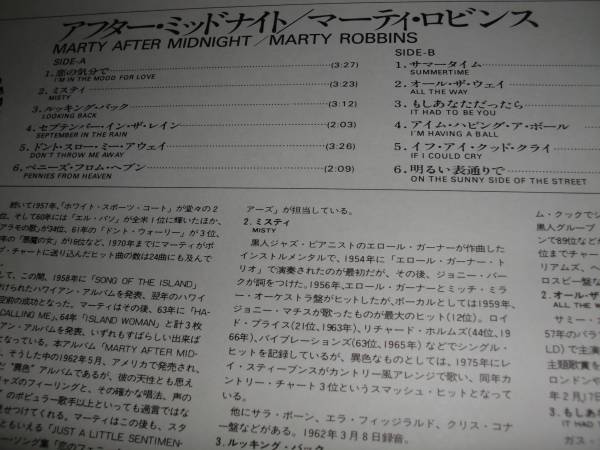 アフター・ミッドナイト／マーティ・ロビンス
MARTY AFTER MIDNIGHT／MARTY ROBBINS
SIDE-A
1. 恋の気分で (3:27)
I'M IN THE MOOD FOR LOVE
2. ミスティ (3:23)
MISTY
3. ルッキング・バック (3:12)
LOOKING BACK
4. セプテンバー・イン・ザ・レイン (2:03)
SEPTEMBER IN THE RAIN
5. ドント・スロー・ミー・アウェイ (3:26)
DON'T THROW ME AWAY
6. ペニーズ・フロム・ヘブン (2:09)
PENNIES FROM HEAVEN
SIDE-B
1. サマータイム
SUMMERTIME
2. オール・ザ・ウェイ
ALL THE WAY
3. もしあなただったら
IT HAD TO BE YOU
4. アイム・ハビング・ア・ボール
I'M HAVING A BALL
5. イフ・アイ・クッド・クライ
IF I COULD CRY
6. 明るい表通りで
ON THE SUNNY SIDE OF THE STREET
続いて1957年、「ホワイト・スポーツ・コート」が堂々の2
位、そして60年には「エル・パソ」が全米1位に輝いたほか、
アラモの歌」が34位、61年の「ドント・ウォーリー」が3位、
年の「悪魔の女」が16位など、1970年までにマーティがポ
プ・チャートに送り込んだヒット曲の数は24曲にも及んで
して、この間、1958年に「SONG OF THE ISLAND」
けられたハワイアン・アルバムを発表、翌年のハワイ
空前の成功となった。マーティはその後、63年に「HA-
CALLING ME」、64年「ISLAND WOMAN」と計3枚
アン・アルバムを発表、いずれもすばらしい出来ば
となっている。本アルバム「MARTY AFTER MID-
、そうした中の1962年5月、アメリカで発売され、
だ"異色"アルバムであるが、彼の天性とも思え
ャズのフィーリングと、その確かな唱法、声の
"のポピュラー歌手以上といっても過言ではな
せつけてくれる。マーティはこの後も、スタ
いえる「JUST A LITTLE SENTIMEN-
アーズ」が担当している。
2. ミスティ
MISTY
黒人ジャズ・ピアニストのエロール・ガーナーが作曲した
インストルメンタルで、1954年に「エロール・ガーナー・ト
リオ」で演奏されたのが最初だが、その後、ジョニー・バー
クが詞をつけた。1956年、エロール・ガーナーとミッチ・ミラ
ー・オーケストラ盤がヒットしたが、ボーカルとしては1959年、
ジョニー・マチスが歌ったものが最大のヒット(12位)。ロイ
ド・プライス(21位、1963年)、リチャード・ホルムズ(44位、19
66年)、バイブレーションズ(63位、1965年)などでシングル・
ヒットを記録しているが、異色なものとしては、1975年にレ
イ・スティーブンスがカントリー風アレンジで歌い、同年カ
ントリー・チャート3位というスマッシュ・ヒットとなって
いる。
他にサラ・ボーン、エラ・フィッジラルド、クリス・コナ
ー盤などがある。1962年3月8日録音。
3. ルッキング・バック
ム・クックでシ
黒人グループ
ンで89位などが
位までチャート
リアムズ、ヘ
ロスビー盤な
2. オール・ザ
ALL THE WA
サミー・
57年のパラ
LD)で主演
主題歌賞を
ロンドンや
年2月17日
3. もしあな
IT HAD TO
ガス・